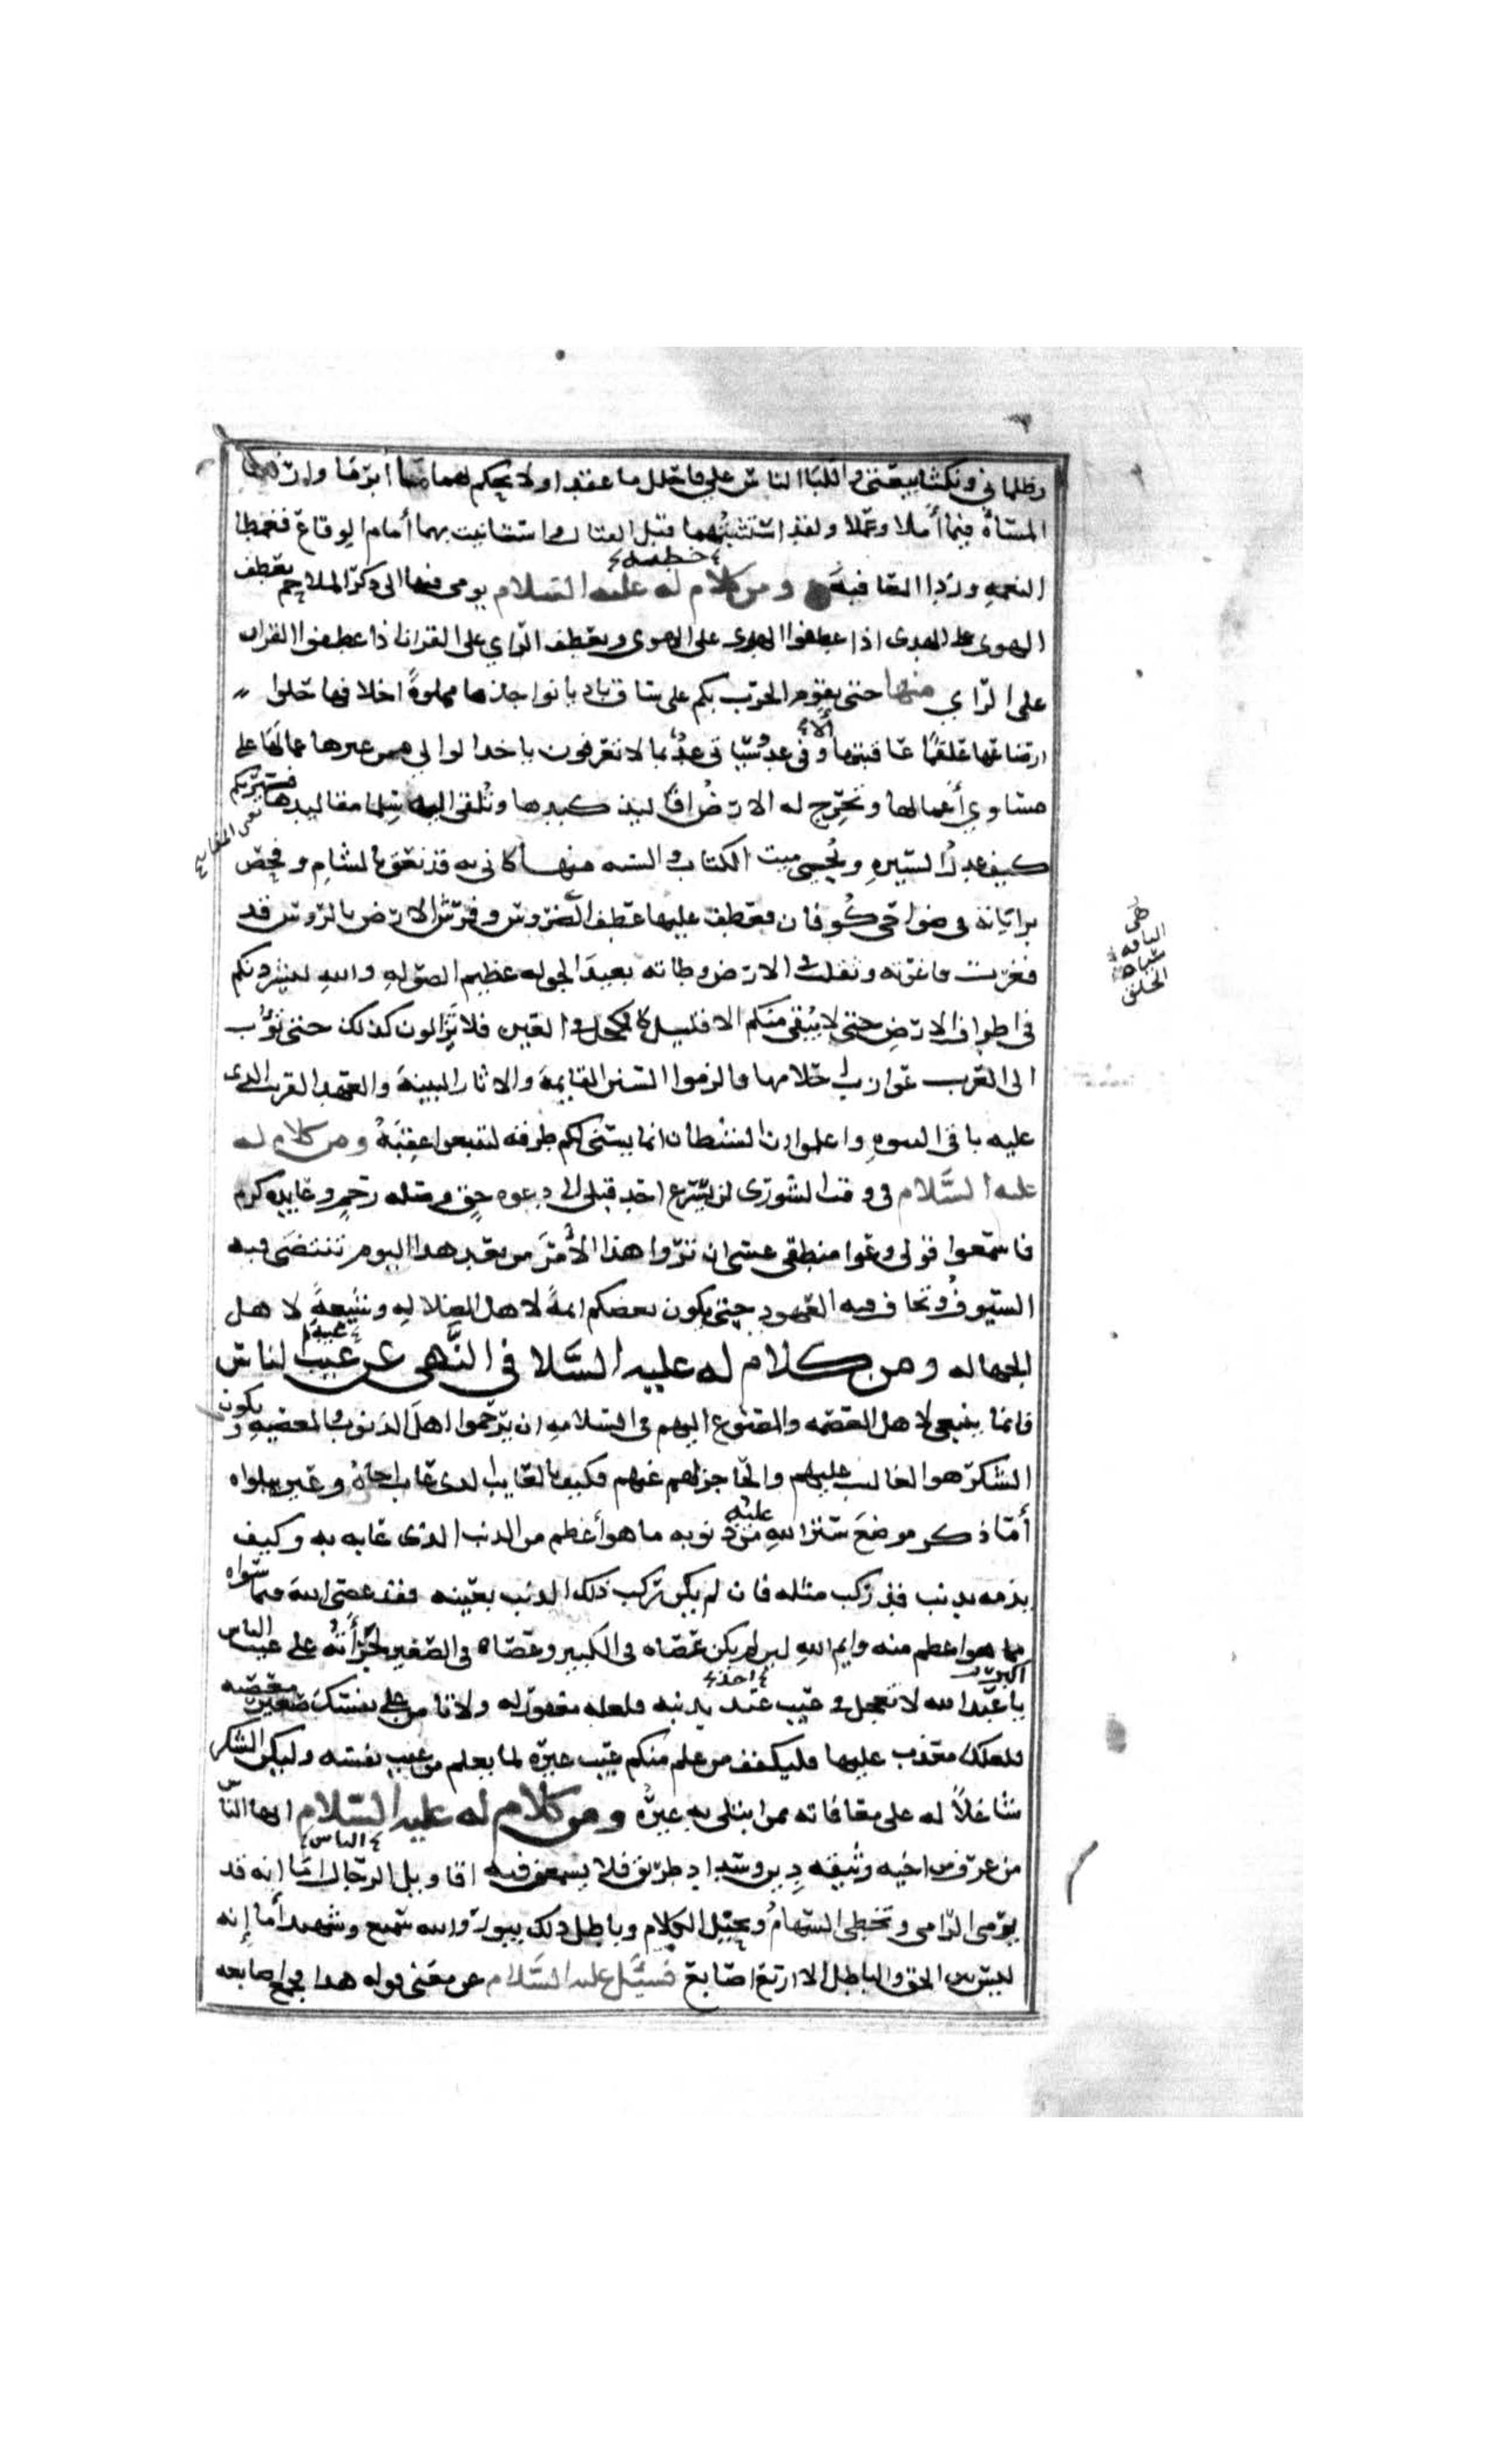 وظلماني ونكثا بيعتي وألبا الناس علي فاحلل ما عقدا ولا تحكم لهما ما أبرما وأرهما
المساة فيما أملا وعملا ولقد استثبتهما قبل القتال واستانيت بهما أمام الوقاع فغمطا
النعمه وردا العافية ومن كلام له عليه السلام يومي فيها الى ذكر الملاحم يعطف
خطبه
الهوى على الهدى اذا عطفوا الهدى على الهوى ويعطف الراي على القران اذا عطفوا القران
على الراي منها حتى يقوم الحرب بكم على ساق باديا نواجذها مملوة اخلافها حلوا
رضاعها علقما عاقبتها الا وفي غد وسياتي غد بما لا تعرفون ياخذ الوالي من غيرها عمالها على
مساوي أعمالها وتخرج له الارض افاليذ كبدها وتلقي اليه سلما مقاليدها فيريكم
كيف عدل السيره ويحيي ميت الكتاب والسنه منها كاني به قد نعق بالشام وفحص
براياته في ضواحي كوفان فعطف عليها عطف الضروس وفرش الارض بالروس قد
فغرت فاغرته وثقلت في الارض وطاته بعيد الجوله عظيم الصوله والله ليشردنكم
في اطراف الارض حتى لا يبقى منكم الا قليل كالكحل في العين فلا تزالون كذلك حتى تؤب
الى العرب عوازب احلامها فالزموا السنن القايمة والاثار البينة والعهد القريب الذي
عليه باقي النبوه واعلموا ان الشيطان انما يسني لكم طرقه لتتبعوا عقبه ومن كلام له
عليه السلام في وقت الشورى لن يسرع احد قبلي الى دعوه حق وصله رحم وعايده كرم
فاسمعوا قولي وعوا منطقي عسى ان تروا هذا الأمر من بعد هذا اليوم تنتضى فيه
السيوف وتخان فيه العهود حتى يكون بعضكم ايمة لاهل الضلاله وشيعة لاهل
الجهاله ومن كلام له عليه السلا في النهي عن عيب الناس
غيبة
فانما ينبغي لاهل العصمه والمصنوع اليهم في السلامه ان يرحموا اهل الذنوب والمعصيه ويكون
الشكر هو الغالب عليهم والحاجز لهم عنهم فكيف بالغايب الذي غاب اخاه وعيره ببلواه
أما ذكر موضع ستر الله عليه من ذنوبه ما هو أعظم من الذنب الذي عابه به وكيف
يذمه بذنب قد ركب مثله فان لم يكن ركب ذلك الذنب بعينه فقد عصى الله فيما سواه
مما هو اعظم منه وايم الله لين لم يكن عصاه في الكبير وعصاه في الصغير لجرأته على عيب الناس
اكبر
يا عبد الله لا تعجل في عيب عبد بذنبه فلعله مغفور له ولا تامن على نفسك صغير معصيه
احد
فلعلك معذب عليها فليكفف من علم منكم عيب غيره لما يعلم من عيب نفسه وليكن الشكر
شاغلا له على معافاته مما ابتلي به غيره ومن كلام له عليه السلام ايها الناس
من عرف من اخيه وثيقه دين وسداد طريق فلا يسمعن فيه اقاويل الرجال اما انه قد
الناس
يرمي الرامي وتخطي السهام ويحيل الكلام وباطل ذلك يبور والله سميع وشهيد أما إنه
ليس بين الحق والباطل الا اربع اصابع فسئل عليه السلام عن معنى قوله هذا فجمع اصابعه
هي
الناقه
الخلق